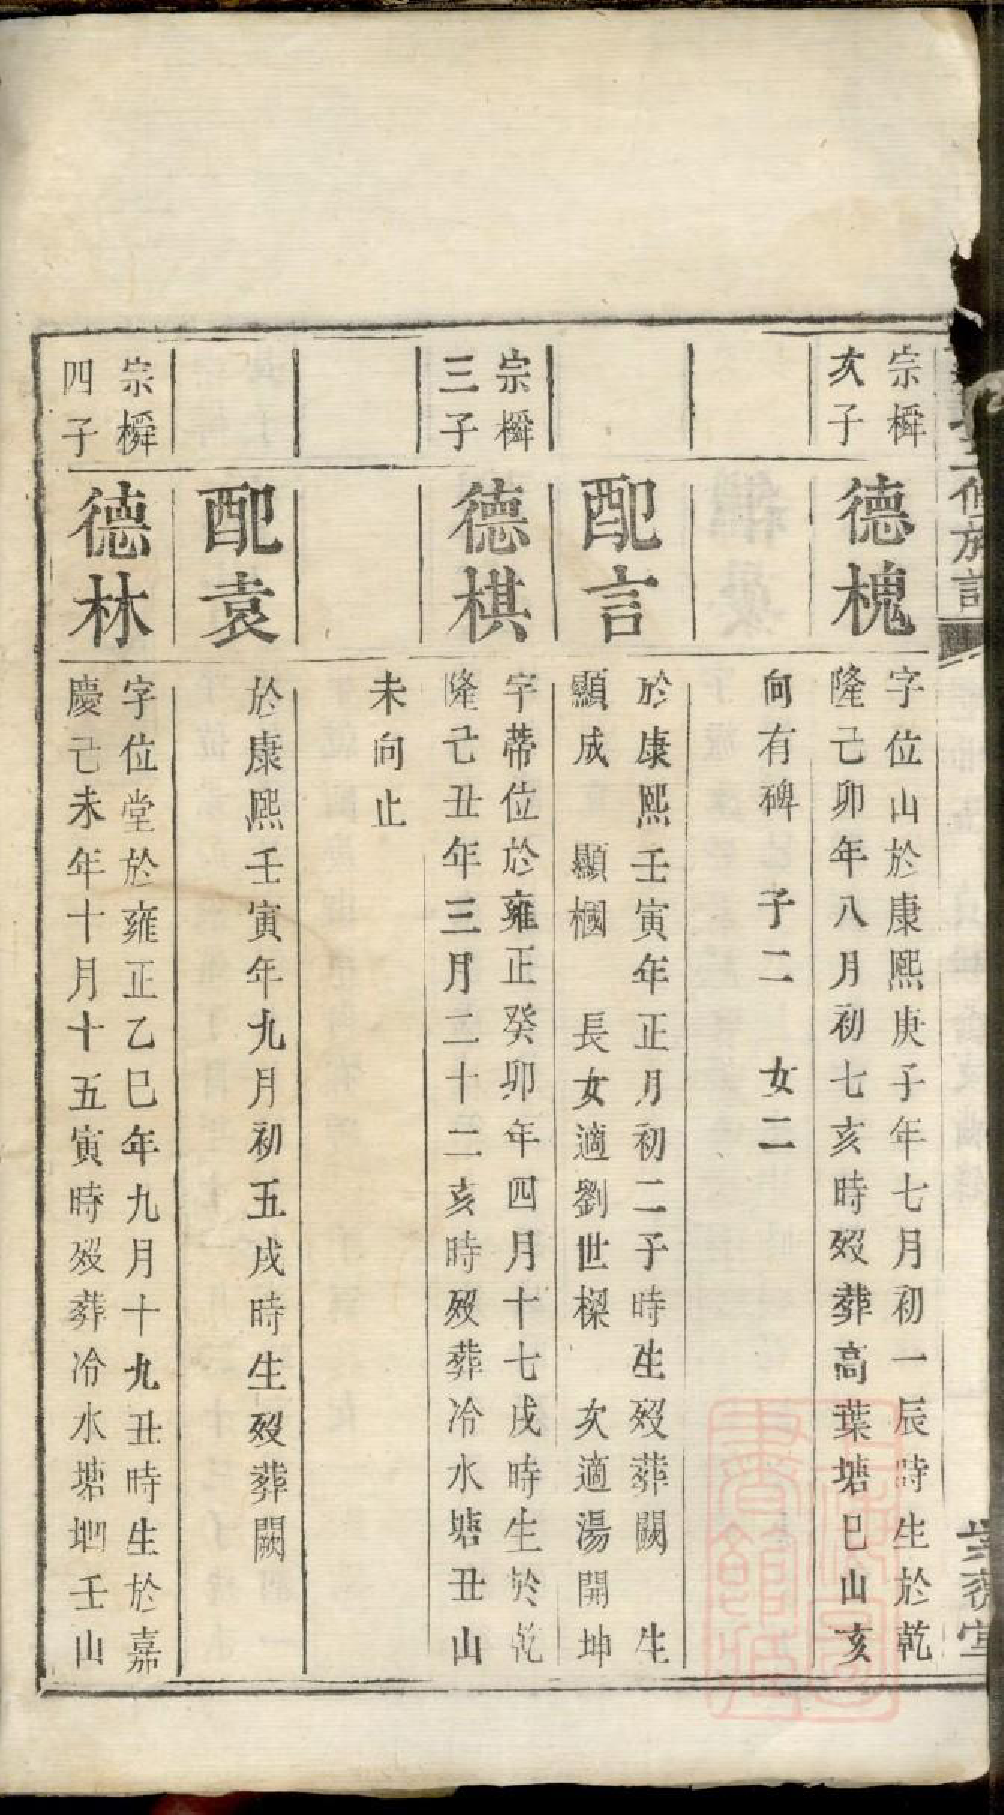 修族譜
宗橓
次子
德槐
字位山於康熙庚子年七月初一辰時生於乾
隆己卯年八月初七亥時歿葬高葉塘巳山亥
向有碑 子二 女二
配言
於康熙壬寅年正月初二子時生歿葬闕 生
顯成 顯槶 長女適劉世樑 次適湯開坤
宗橓
三子
德棋
字蒂位於雍正癸卯年四月十七戌時生於乾
隆己丑年三月二十二亥時歿葬冷水塘丑山
未向止
配袁
於康熙壬寅年九月初五戌時生歿葬闕
宗橓
四子
德林
字位堂於雍正乙巳年九月十九丑時生於嘉
慶己未年十月十五寅時歿葬冷水塘壬山